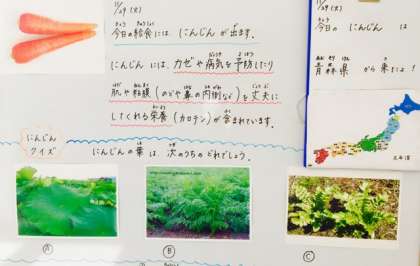 11/29(火)
今日の給食には、にんじんが出ます。
にんじんには、カゼや病気を予防したり
肌や粘膜(のどや鼻の内側など)を丈夫に
してくれる栄養(カロテン)が含まれています。
にんじん
クイズ
にんじんの葉は、次のうちのどれでしょう。
A
B
C
11/29(火)
今日の にんじん は
青森県 から来たよ!